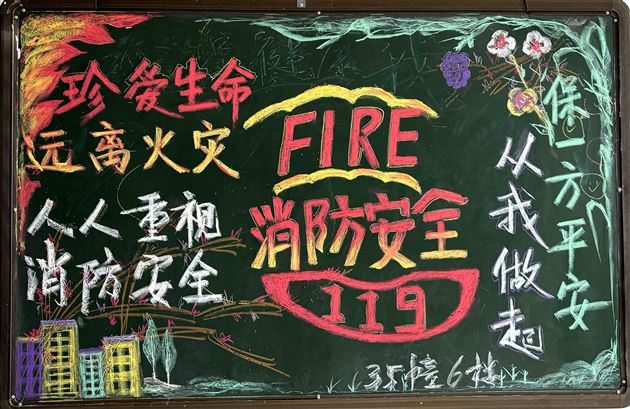 珍爱生命
远离火灾
人人重视
消防安全
FIRE
消防安全
119
从我做起
保一方平安
幢6楼